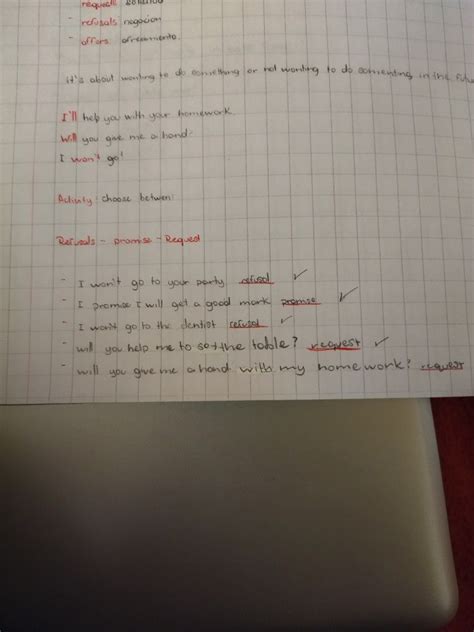 requests solicitud
- refusals negacion
- offers ofrecimiento.
it's about wanting to do something or not wanting to do something in the
I'll help you with your homework.
Will you give me a hand?
I won't go!
Activity: choose between:
Refusals - promise - Request
- I won't go to your party refusal ✓
- I promise I will get a good mark promise ✓
- I won't go to the dentist refusal ✓
- will you help me to set the table? request ✓
- will you give me a hand with my homework? request